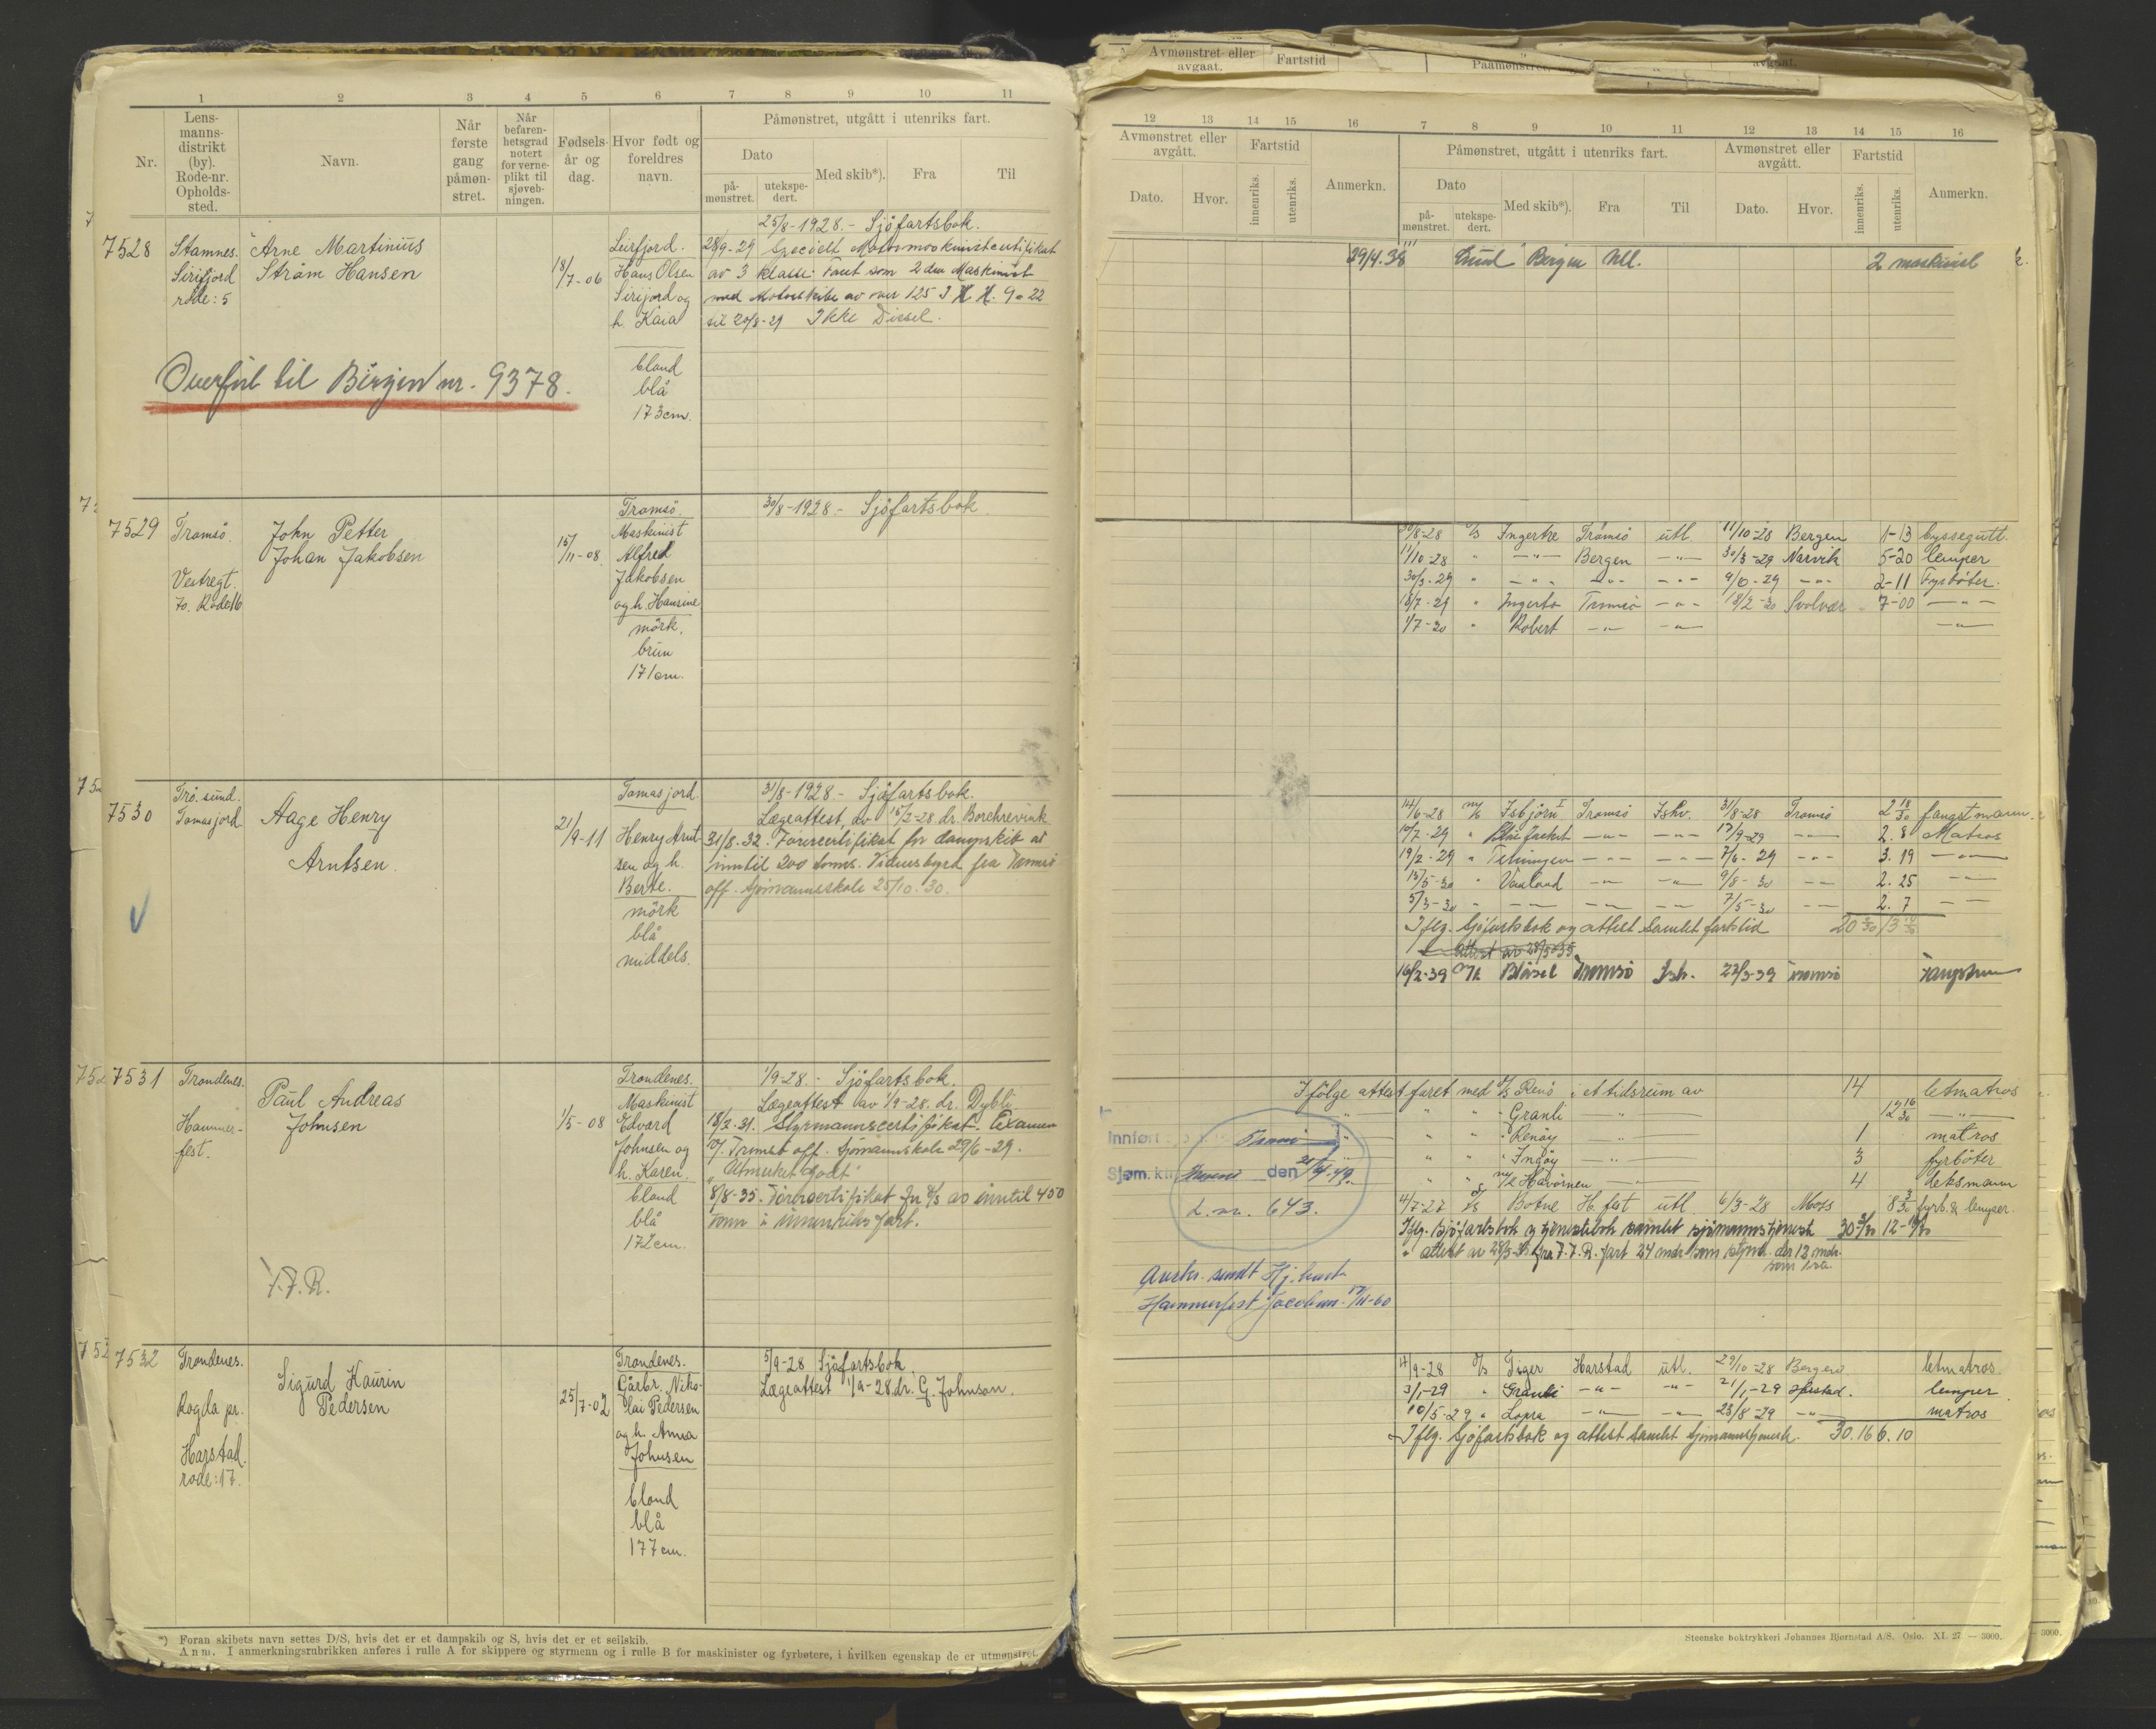 1 2 3 4 5 6 7 8 9 10 11
Nr.
Lens-
manns-
distrikt
(by).
Rode-nr.
Opholds-
sted.
Navn.
Når
første
gang
påmøn-
stret.
Når
befaren-
hetsgrad
notert
for verne-
plikt til
sjøveb-
ningen.
Fødsels-
år og
dag.
Hvor født og
foreldres
navn.
Påmønstret, utgått i utenriks fart.
Dato
på-
mønstret.
utekspe-
dert.
Med skib*).
Fra
Til
7528
Stamnes.
Sirifjord
rode: 5
Arne Martinius
Strøm Hansen
18/7-06
Leirfjord.
Hans Olsen
Sirijord og
h. Kaia
blond
blå
173cm.
25/8-1928.- Sjöfartsbok.
28/9-29 Specielt Motormaskinistcertifikat
av 3 klasse. Faret som 2den Maskinist
med Motorskibe av over 125 I H. K. 9-22
til 20/8-29 Ikke Diesel.
Overført til Bergen nr. 9378.
7529
Tromsö.
Vestregt.
70. Rode 16
John Petter
Johan Jakobsen
15/11-08.
Tromsö.
Maskinist
Alfred
Jakobsen
og h. Hansine
mörk.
brun
171cm.
30/8-1928.- Sjöfartsbok.
7530
Trö.sund.
Tomasjord.
Aage Henry
Arntsen.
21/9-11
Tomasjord
Henry Arnt
sen og h.
Berte.
mörk
blå
middels.
31/8-1928.- Sjöfartsbok.
Lægeattest, av 15/2-28 dr. Borchrevink
31/8-32. Förercertifikat for dampskib av
inntil 200 tonns. Vidnesbyrd fra Tromsö
off. Sjömannsskole 25/10.30.
7531
Trondenes.
Hammer-
fest.
Paul Andreas
Johnsen
F.F.R.
1/5-08
Trondenes.
Maskinist
Edvard
Johnsen og
h. Karen.
blond
blå
172cm.
1/9-28.- Sjöfartsbok.
Lægeattest av 1/9-28. dr. Dybli
18/2-31. Styrmannscertifikat. Examen
v/ Tromsö off. Sjömannskole 29/6-29.
"Utmerket godt"
8/8-35. Förercertifikat for D/S av inntil 450
tonn i innenriks fart.
7532
Trondenes.
Rogla pr.
Harstad.
rode: 17.
Sigurd Kaurin
Pedersen
25/7-02
Trondenes.
Gårbr. Niko-
lai Pedersen
og h. Anna
Johnsen
blond
blå
177cm.
5/9-28 Sjöfartsbok.
Lægeattest 1/9-28 dr. G. Johnson.
*) Foran skibets navn settes D/S, hvis det er et dampskib og S, hvis det er et seilskib.
Anm. I anmerkningsrubrikken anføres i rulle A for skippere og styrmenn og i rulle B for maskinister og fyrbøtere, i hvilken egenskap de er utmønstret.
Avmønstret eller
avgaat.
Fartstid
12 13 14 15 16 7 8 9 10 11 12 13 14 15 16
Avmønstret eller
avgått.
Fartstid
Dato.
Hvor.
innenriks.
utenriks.
Anmerkn.
Påmønstret, utgått i utenriks fart.
Dato
på-
mønstret.
utekspe-
dert.
Med skib*).
Fra
Til
Avmønstret eller
avgått.
Dato.
Hvor.
Fartstid
innenriks.
utenriks.
Anmerkn.
29/4.38 Bergen Utl. 2 maskinist
20/8-28 D/S Ingertre Tromsö utl. 11/10-28 Bergen 1-13 byssegutt.
11/10-28 " —"— Bergen —"— 30/3-29 Narvik 5-20 lemper
30/3-29 " —"— —"— —"— 9/6-29 —"— 2-11 Fyrböter.
18/7-29 " Ingerto Tromsö —"— 18/2-30 Svolvær 7-00 —"—
1/7-30 " Robert —"— —"— —"—
14/6-28 M/K Isbjörn I Tromsö Ishv. 31/8-28 Tromsö 2 18/30 fangstmann.
10/7-29 " —"— —"— 17/9-29 —"— 2. 8 Matros
19/2-29 " —"— —"— 7/6-29 —"— 3. 19 —"—
15/5-30 " —"— —"— 9/8-30 —"— 2. 25 —"—
5/3-30 " —"— —"— —"— 7/5-30 —"— 2. 7 —"—
Iflg. Sjöfartsbok og attest samlet fartstid
attest av 28/5-35
16/2-39 M/K Blåsel Tromsö Ish. 22/5-39 Tromsö
I fölge attest faret med D/S Renö i et tidsrum av 14 letmatros
" " " Granli —"— 12 16/30 —"—
" " " Renöy —"— 1 matros
" " " Ingöy —"— 3 fyrböter
" " M/K Havörnen —"— 4 deksmann
4/7-27 D/S Botne H.fest utl. 6/3-28 Moss 8 3/30 fyrb. & lemper.
Iflg. sjöfartsbok og tjenestebok samlet sjömannstjeneste
" attest av F.F.R. fart 24 mdr som styrm. der 12 mdr.
Innført
Tromsö
Sjøm.ktr. Tromsö den
L.nr. 643.
Avskr. sendt Hj.havn
Hammerfest Jacobsen. 17/11-60
14/9-28 D/S Tiger Harstad utl. 29/10-28 Bergen letmatros.
3/1-29 " Granli —"— —"— 21/1-29 Harstad. lemper
10/5-29 " Lopra —"— —"— 23/8-29 —"— matros
Iflg. Sjöfartsbok og attest samlet sjömannstjeneste. 30.16 6.10
Steenske boktrykkeri Johannes Bjørnstad A/S. Oslo. XI. 27 — 3000.